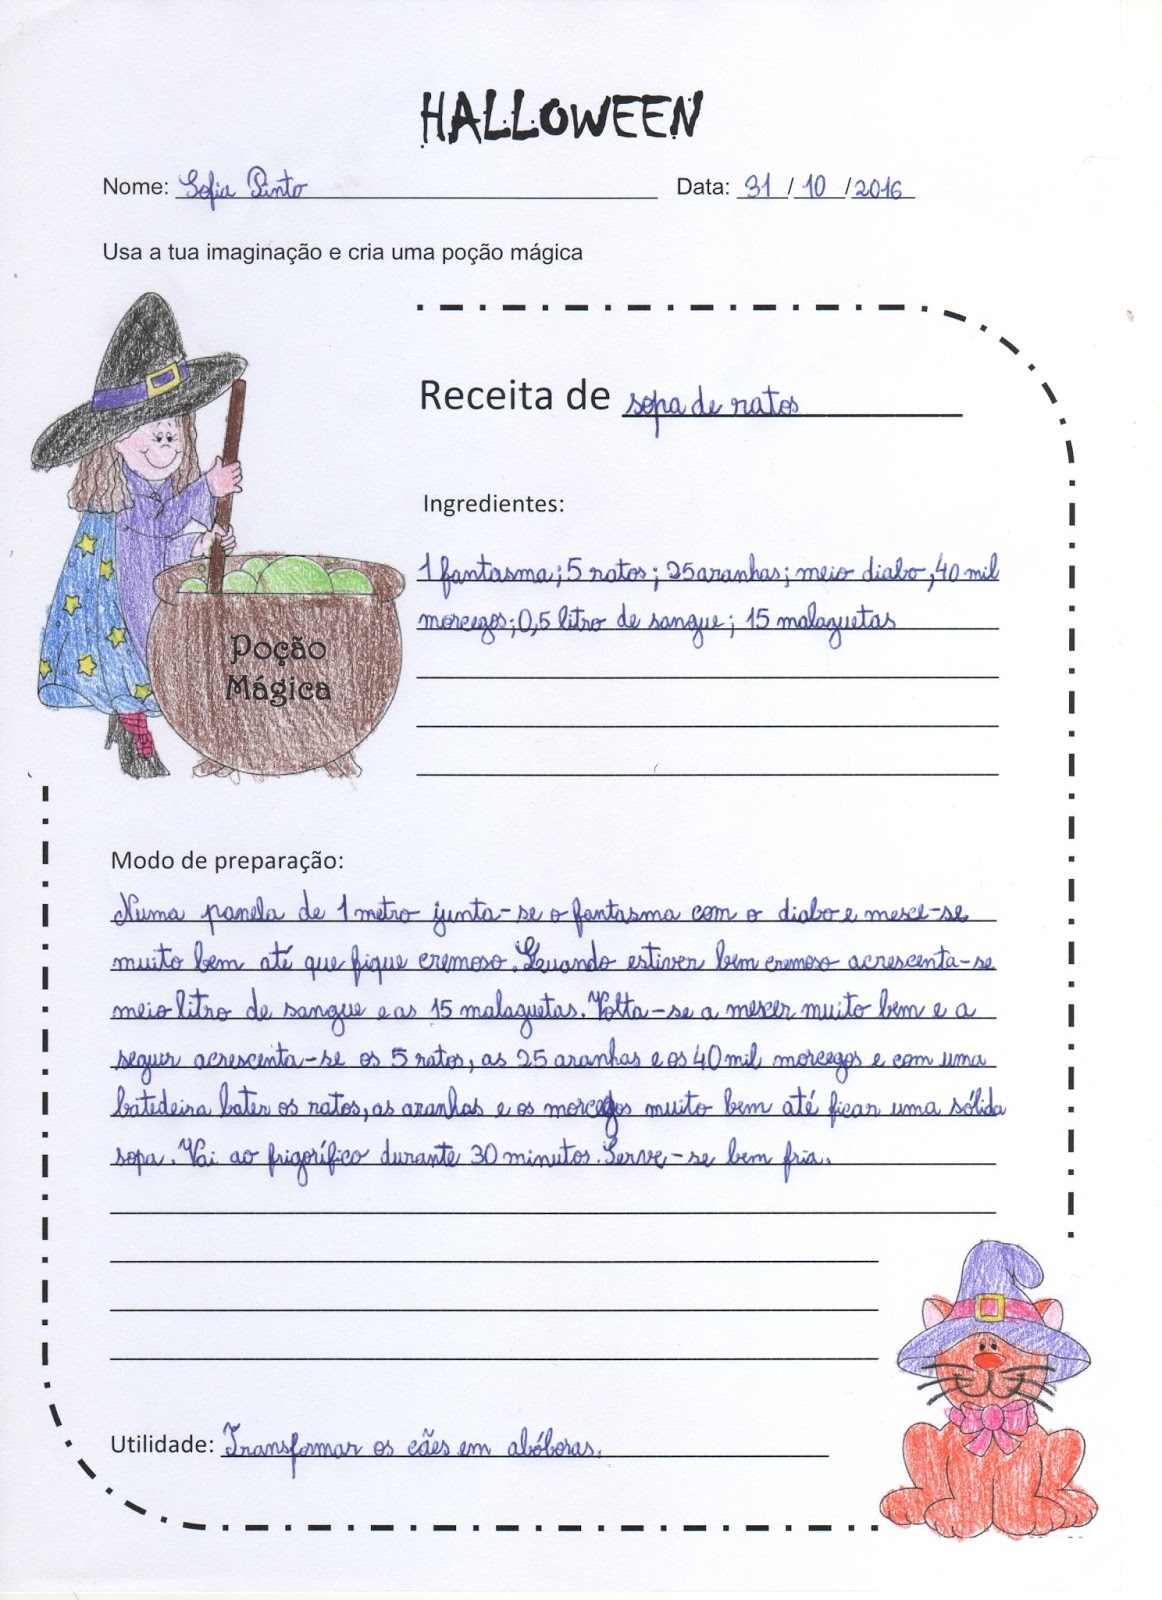 HALLOWEEN
Nome: Sofia Pinto Data: 31/10/2016
Usa a tua imaginação e cria uma poção mágica
Receita de sopa de ratos
Ingredientes:
1 fantasma; 5 ratos; 25 aranhas; meio diabo, 40 mil
morcegos; 0,5 litro de sangue; 15 malaguetas
Poção
Mágica
Modo de preparação:
Numa panela de 1 metro junta-se o fantasma com o diabo e mexe-se
muito bem até que fique cremoso. Quando estiver bem cremoso acrescenta-se
meio litro de sangue e as 15 malaguetas. Volta-se a mexer muito bem e a
seguir acrescenta-se os 5 ratos, as 25 aranhas e os 40 mil morcegos e com uma
batedeira bater os ratos, as aranhas e os morcegos muito bem até ficar uma sólida
sopa. Vai ao frigorífico durante 30 minutos. Serve-se bem fria.
Utilidade: Transformar os cães em abóboras.